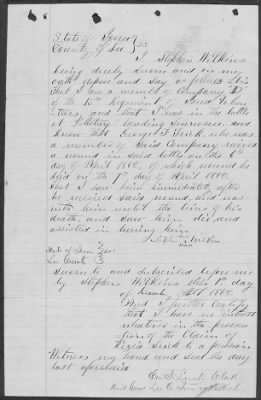 State of Iowa } ss
County of Lee
I Stephen Wilkins
being duly sworn and on my
oath depose and say, as follows to wit
That I am a member of Company "D"
of the 15th Regiment of Iowa Volun-
teers, and that I was in the battle
of Pittsburg Landing Tennessee and
know that George F. who was
a member of said Company received
a wound in said battle on the 6
day of April 1862, of which wound he
died on the day of April 1862,
that I saw him immediately after
he received said wound, and was
with him until the time of his
death, and saw him die, and
assisted in burying him
Stephen Wilkins
State of Iowa } ss
Lee County
Sworn to and subscribed before me
by Stephen Wilkins this day
of A.D. 1862
And I further certify
that I have no interest
in the prosecu-
tion of the Claim of
to a pension
Witness my hand and seal the day
last aforesaid
Clerk
Lee Co